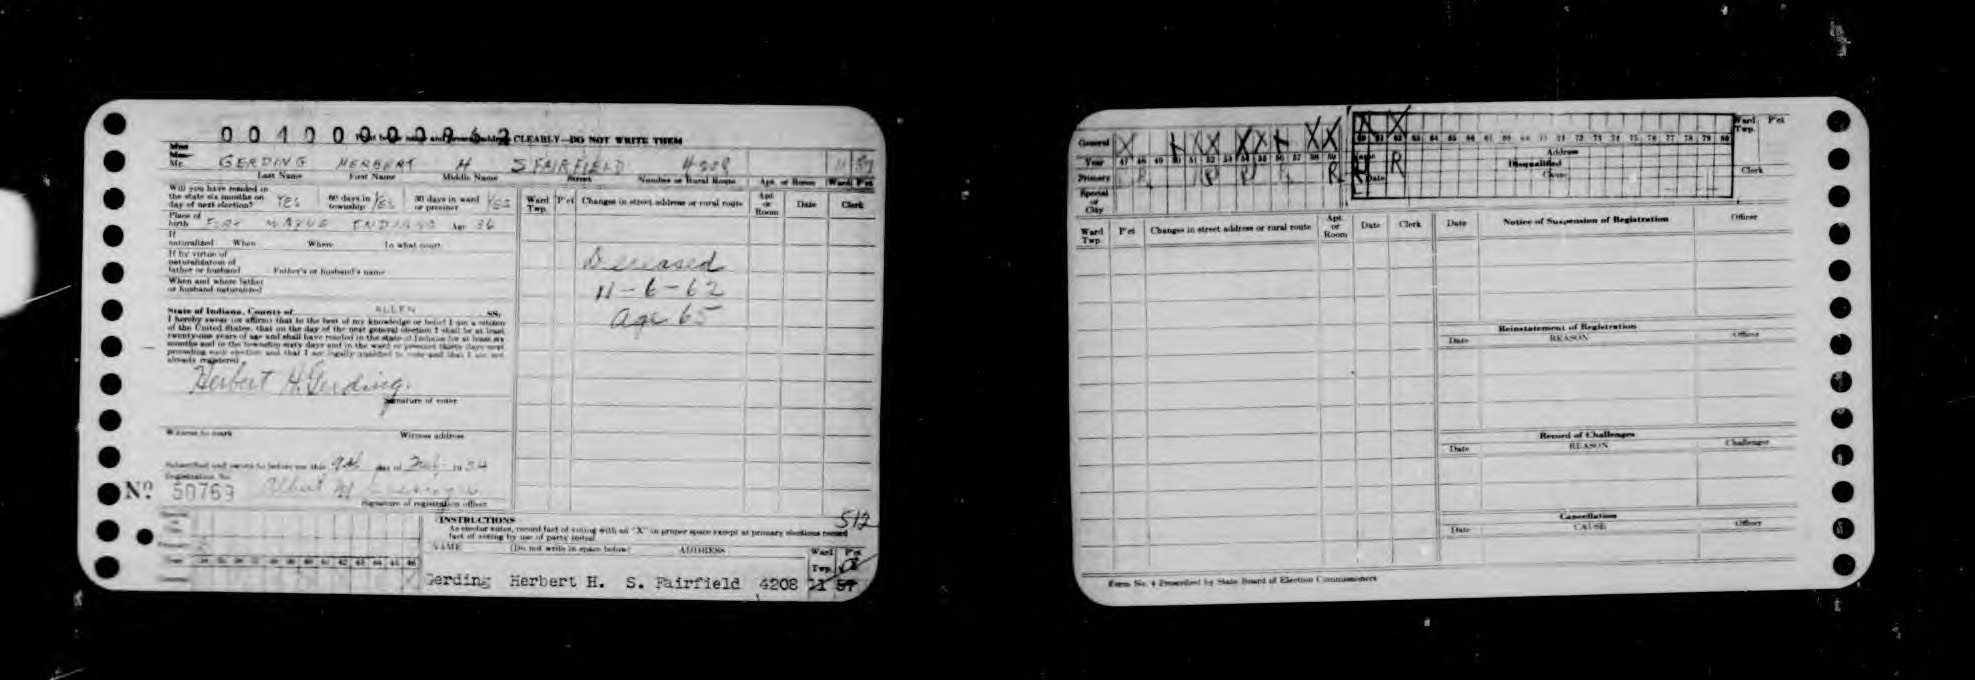 CLEARLY—DO NOT WRITE THEM
Mr. GERDING HERBERT H S FAIRFIELD 4208 11 57
Last Name First Name Middle Name Street Number or Rural Route Apt. or Room Ward Pct
Will you have resided in the state six months on day of next election? YES 60 days in township YES 30 days in ward or precinct YES
Place of birth WAYNE INDIANA Age 36
If naturalized When Where In what court
If by virtue of naturalization of father or husband Father's or husband's name
When and where father or husband naturalized
State of Indiana, County of ALLEN SS.
I hereby swear (or affirm) that to the best of my knowledge or belief I am a citizen
of the United States, that on the day of the next general election I shall be at least
twenty-one years of age and shall have resided in the state of Indiana for at least six
months and in the township sixty days and in the ward or precinct thirty days next
preceding such election and that I am legally qualified to vote and that I am not
already registered
Herbert H. Gerding.
Signature of voter
Witness to mark Witness address
Subscribed and sworn to before me this day of 1934
Registration No.
No. 50769 Albert H
Signature of registration officer
Ward Twp. P'ct Changes in street address or rural route Apt. or Room Date Clerk
Deceased
11-6-62
Age 65
INSTRUCTIONS
As elector votes, record fact of voting with an "X" in proper space except at primary elections record
fact of voting by use of party initial
512
NAME (Do not write in space below) ADDRESS Ward Twp. P'ct
Gerding Herbert H. S. Fairfield 4208 11 57
General X X X X X X X X X X
Year 47 48 49 50 51 52 53 54 55 56 57 58 59 60 61 62 63 64 65 66 67 68 69 70 71 72 73 74 75 76 77 78 79 80
Primary R R R R R R
Special or City
Name Address Ward Twp. P'ct
Disqualified
Date Cause Clerk
Ward Twp. P'ct Changes in street address or rural route Apt. or Room Date Clerk
Date Notice of Suspension of Registration Officer
Reinstatement of Registration
Date REASON Officer
Record of Challenges
Date REASON Challenger
Cancellation
Date CAUSE Officer
Form No. 4 Prescribed by State Board of Election Commissioners